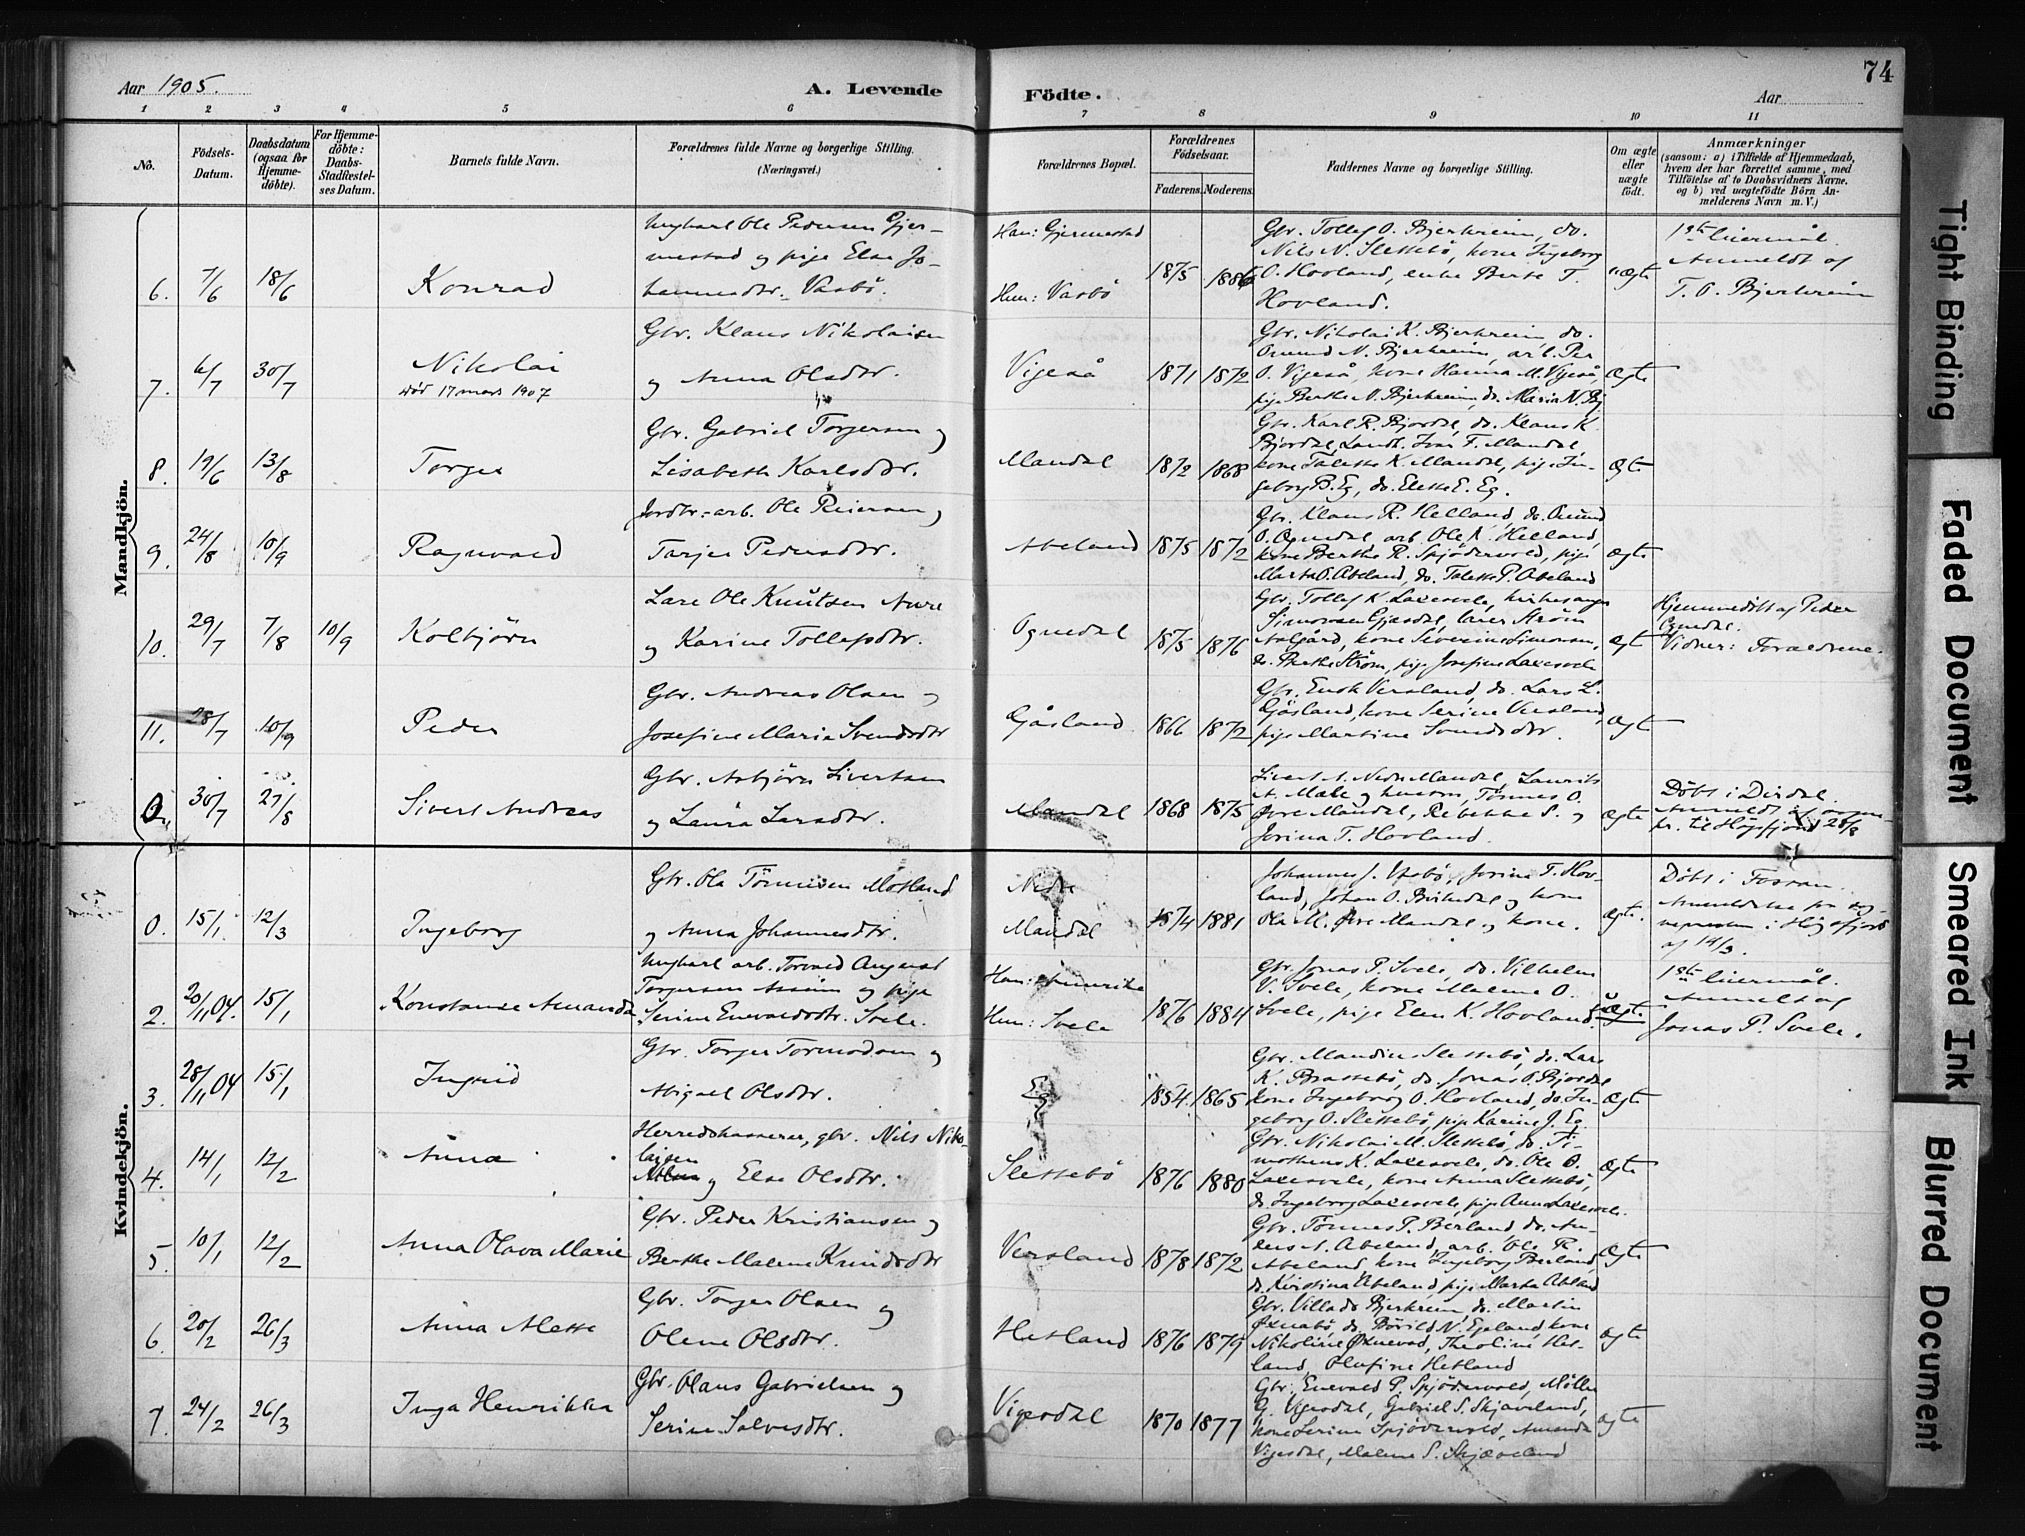 74
Aar 1905.
A. Levende
Födte.
Aar
1 2 3 4 5 6 7 8 9 10 11
No.
Födsels-
Datum.
Daabsdatum
(ogsaa for
Hjemme-
döbte).
For Hjemme-
döbte:
Daabs-
Stadfæstel-
ses Datum.
Barnets fulde Navn.
Forældrenes fulde Navne og borgerlige Stilling.
(Næringsvei.)
Forældrenes Bopæl.
Forældrenes
Födselsaar.
Faderens. Moderens.
Faddernes Navne og borgerlige Stilling.
Om ægte
eller
uægte
födt.
Anmærkninger
(saasom: a) i Tilfælde af Hjemmedaab,
hvem der har forrettet samme, med
Tilföielse af to Daabsvidners Navne.
og b) ved uægtefödte Börn An-
melderens Navn m. V.)
Mandkjön.
6. 7/6 18/6 Konrad
Ungkarl Ole Pedersen Gjer-
mestad og pige Else Jo-
hannesdtr. Vasbö.
Han: Gjermestad
Hun: Vasbö
1875 1886
Gbr. Tollef O. Bjerkreim, do.
Nils N. Slettebö, kone Ingeborg
O. Hovland, enke Berte T.
Hovland.
uægte
1ste leiermål.
Anmeldt af
T. O. Bjerkreim
7. 6/7 30/7 Nikolai
död 17 mars 1907
Gbr. Klaus Nikolaisen
og Anna Olsdtr.
Vigeså 1871 1872
Gbr. Nikolai K. Bjerkreim, do.
Omund N. Bjerkreim, arb. Per
O. Vigeså, kone Hanna M. Vigeså,
pige Berthe N. Bjerkreim, do. Maria N. Bj
ægte
8. 19/6 13/8 Torger
Gbr. Gabriel Torgersen og
Lisabeth Karlsdtr.
Mandal 1872 1868
Gbr. Karl R. Bjordal, do. Klaus K.
Bjordal, Landh. Ivar T. Mandal,
kone Talette K. Mandal, pige In-
geborg B. Eg, do. Elette E. Eg.
ægte
9. 24/8 10/9 Ragnvald
Jordbr.-arb. Ole Reiersen og
Tarjer Pedersdtr.
Abeland 1875 1872
Gbr. Klaus R. Helland, do. Omund
O. Ognedal, arb. Ole K. Helland,
kone Berthe R. Spjödevold, pige
Marta O. Abeland, do. Talette P. Abeland
ægte
10. 29/7 7/8 10/9 Kolbjörn
Lærer Ole Knutsen Aure
og Karine Tollefsdtr.
Ognedal 1875 1876
Gbr. Tollef K. Laxesvele, kirkesanger
Simonsen Gjesdal, lærer Ström
Aalgård, kone Severine Simonsen,
do. Berthe Ström, pige Josefine Laxesvele
ægte
Hjemmedöbt af Peder
Ognedal.
Vidner: Forældrene.
11. 28/7 10/9 Peder
Gbr. Andreas Olsen og
Josefine Marie Svendsdtr
Gåsland 1866 1872
Gbr. Enok Versland, do. Lars L.
Gåsland, kone Serine Versland,
pige Martine Svendsdtr.
ægte
0. 30/7 27/8 Sivert Andreas
Gbr. Asbjörn Sivertsen
og Laura Larsdtr.
Mandal 1868 1875
Sivert A. Nedre Mandal, Laurits
A. Male og hustru, Tönnes O.
Övre Mandal, Rebekka S. og
Jorina T. Hovland.
ægte
Döbt i Dirdal.
Anmeldt af sogne-
pr. til Högsfjord 28/8
Kvindekjön.
0. 15/1. 12/3 Ingeborg
Gbr. Ola Tönnesen Motland
og Anna Johannesdtr.
Nedre
Mandal
1874 1881
Johannes J. Vasbö, Jorine T. Hov-
land, Johan O. Birkedal og kone
Ola M. Övre Mandal og kone.
ægte.
Döbt i Fossan.
Anmeldelse fra sog-
nepresten i Högsfjord
af 14/3.
2. 20/11 04. 15/1 Konstanse Amanda
Ungkarl arb. Torvald August
Torgersen Assum og pige
Serine Enevaldsdtr. Svele.
Han: Amerika
Hun: Svele
1876 1884
Gbr. Jonas P. Svele, do. Vilhelm
V. Svele, kone Malene O.
Svele, pige Elen K. Hovland.
uægte
1ste leiermål.
Anmeldt af
Jonas P. Svele.
3. 28/11 04 15/1 Ingrid
Gbr. Torger Tormodsen og
Abigael Olsdtr.
Eg 1854. 1865
Gbr. Mandius Slettebö, do. Lars
K. Brattebö, do. Jonas O. Bjordal
kone Ingeborg O. Hovland, do. In-
geborg O. Slettebö, pige Karine J. Eg.
ægte
4. 14/1 12/2 Anna
Herredskasserer, gbr. Nils Niko-
laisen
og Else Olsdtr.
Slettebö 1876 1880
Gbr. Nikolai M. Slettebö, do. Ti-
motheus K. Laxesvele, do. Ole O.
Laxesvele, kone Anna Slettebö,
do. Ingeborg Laxesvele, pige Anna Laxesvele.
ægte
5. 10/1 12/2 Anna Olava Marie
Gbr. Peder Kristiansen og
Berthe Malene Knudsdtr
Versland 1878 1872
Gbr. Tönnes P. Berland, do. An-
ders A. Abeland, arb. Ole R.
Abeland, kone Ingeborg Berland,
do. Kristina Abeland, pige Marta Abeland
ægte
6. 20/2 26/3 Anna Alette
Gbr. Torger Olsen og
Olene Olsdtr.
Hetland 1876 1879
Gbr. Villads Bjerkreim, do. Martin
Öxnabö, do. Börild N. Egeland, kone
Nikoline Öxnevad, Theoline Het-
land, Olufine Hetland
ægte
7. 24/2 26/3 Inga Henrikka
Gbr. Olaus Gabrielsen og
Serine Salvesdtr.
Vigesdal 1870 1877
Gbr. Enevald P. Spjödevold, Möller
G. Vigesdal, Gabriel S. Skjæveland,
kone Serine Spjödevold, Amanda
Vigesdal, Malene S. Skjæveland
ægte
Tight Binding
Faded Document
Smeared Ink
Blurred Document